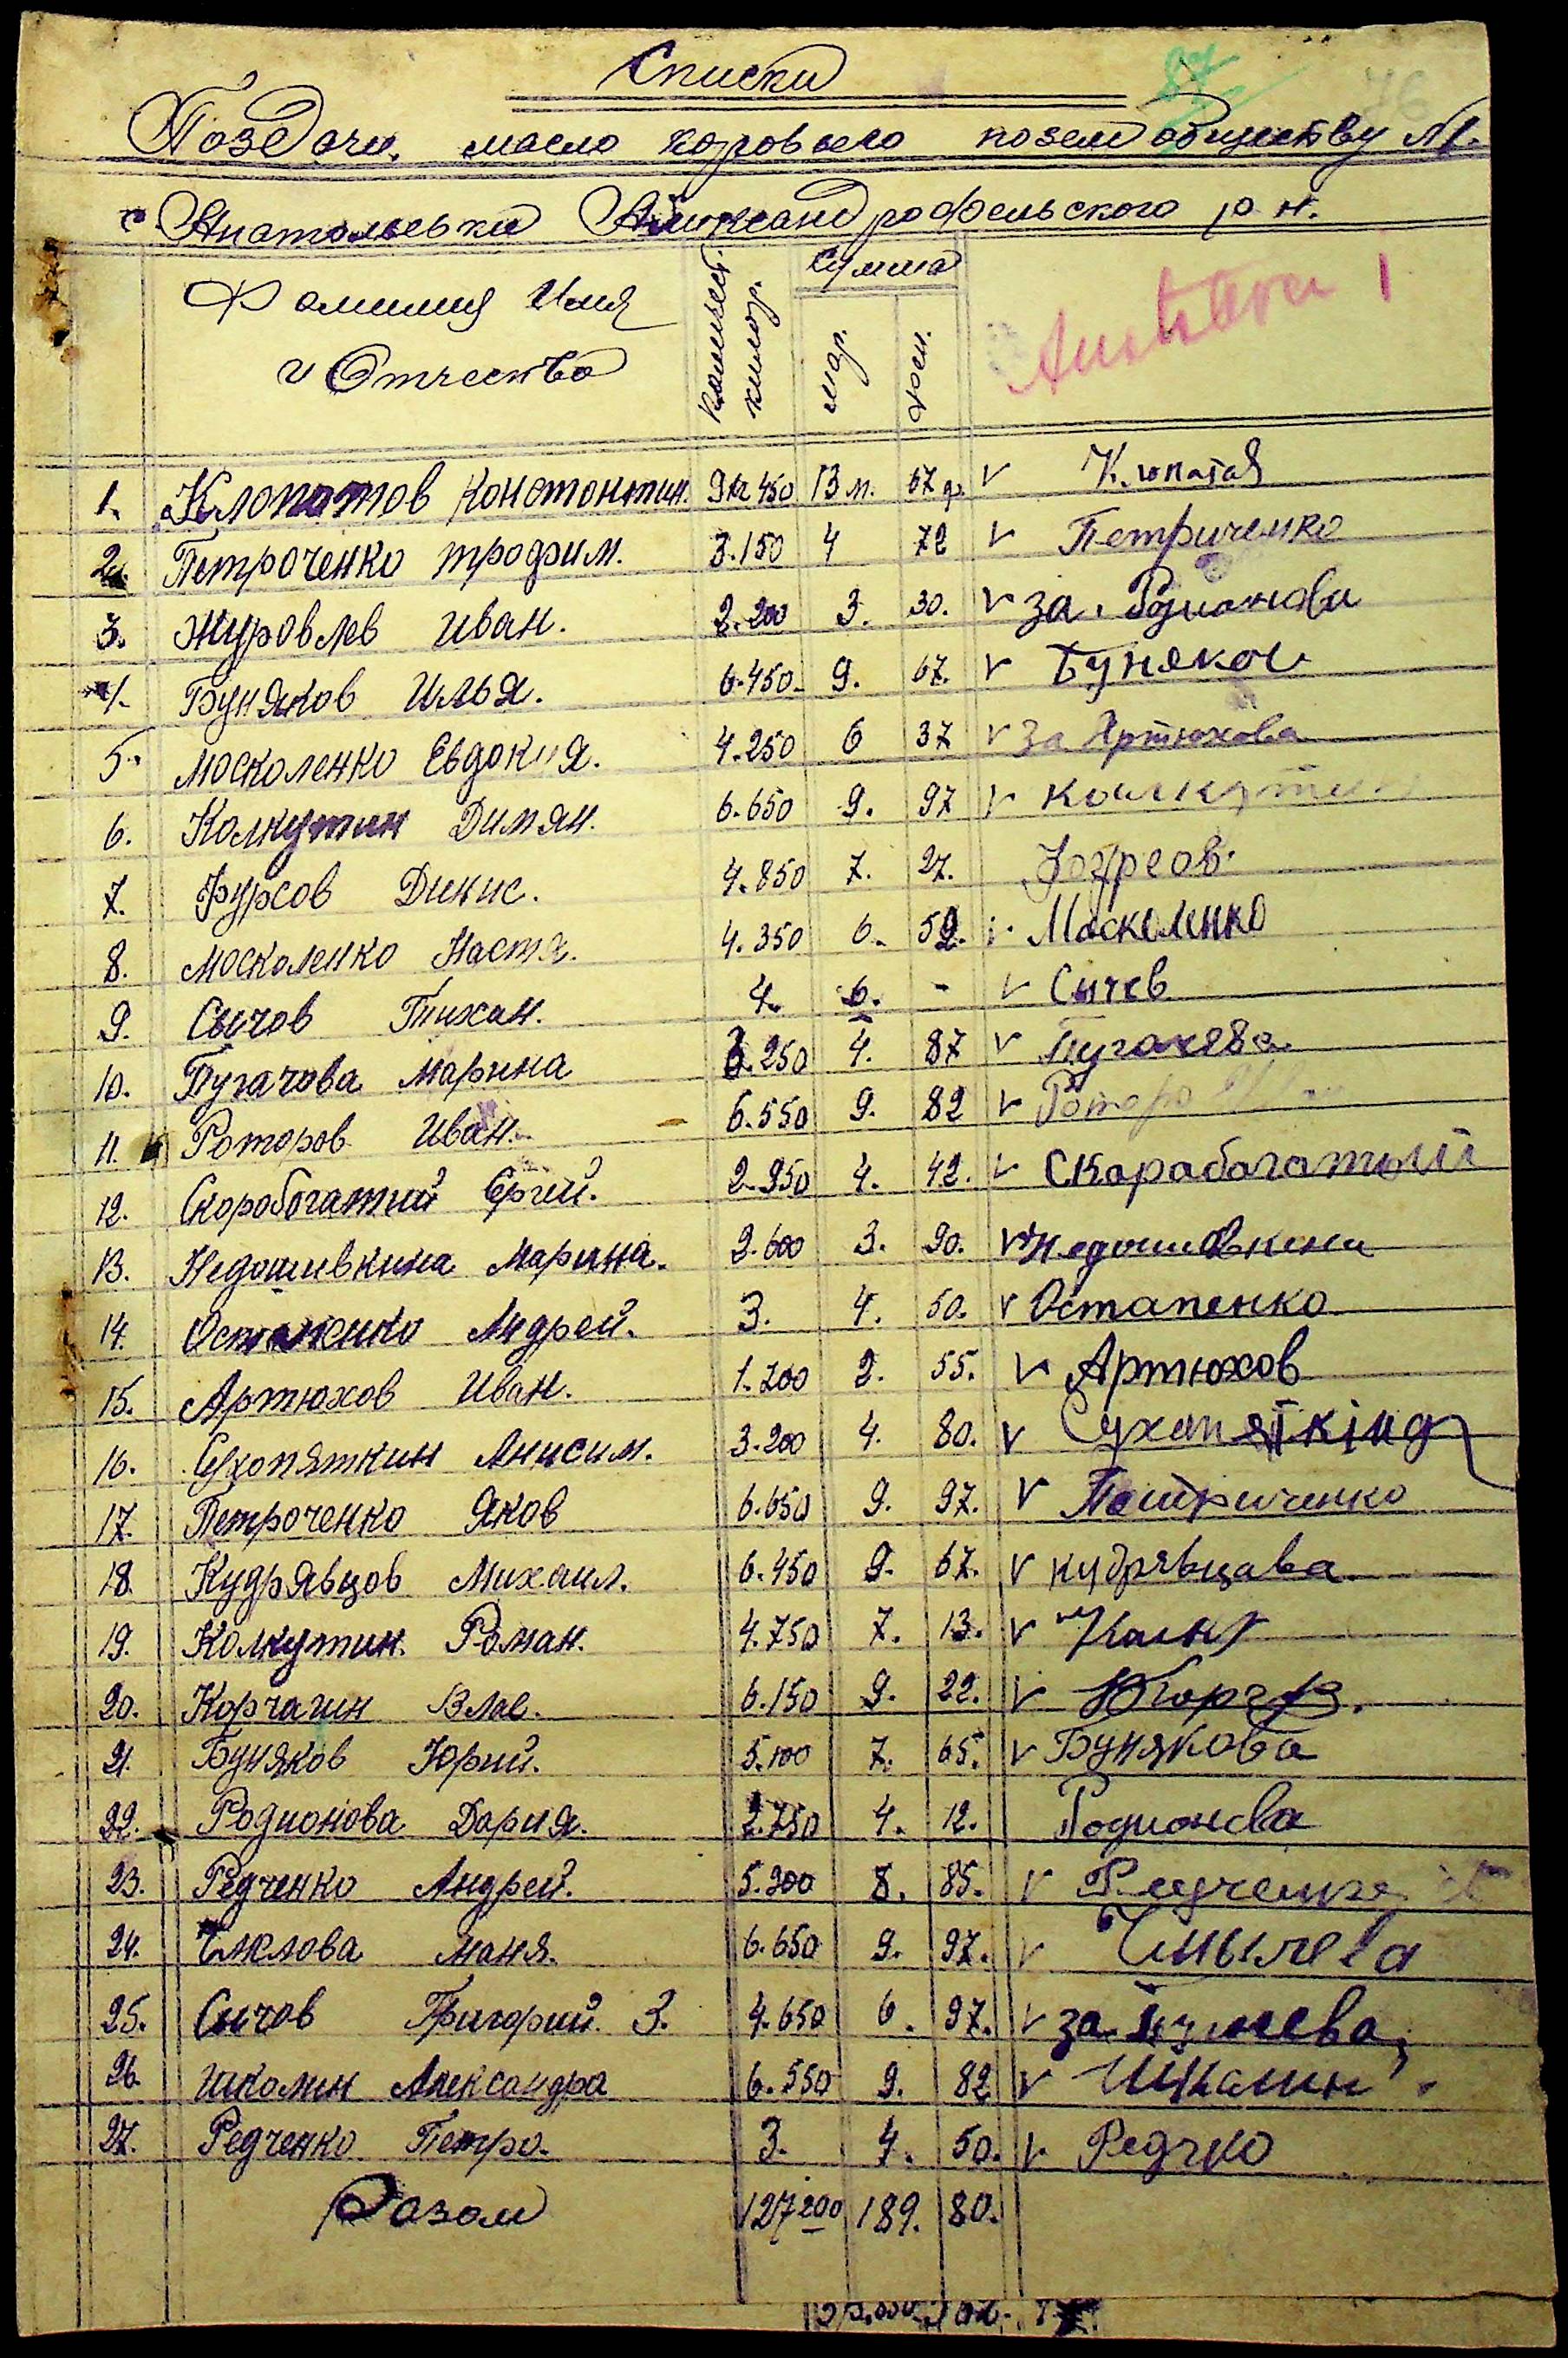 Списки
Поздачи масло коровьего позем обществу №1.
с Анатольевки Александрофельского р н.
Фамилия Имя и Отчество
Количест. килогр.
Сумма
мар.
феи.
1. Клопотов Констонтин. 9 кг 450 13 м. 67 ф. v Клопатов
2. Петроченко трофим. 3.150 4 72 v Петриченко
3. Журовлев Иван. 2.200 3. 30. v за Родионова
4. Буняков Илья. 6.450. 9. 67. v Буняков
5. Москоленко Евдокия. 4.250 6 37 v За Артюхова
6. Колкутин Димян. 6.650 9. 97 v Калкутин
7. Фурсов Динис. 4.850 7. 27. Фурсов.
8. Москоленко Настя. 4.350 6. 52. v Москаленко
9. Сычов Тихан. 4. 6. - v Сычев
10. Пугачова Марина 3.250 4. 87 v Пугачева
11. Роторов Иван. 6.550 9. 82 v
12. Скоробогатий Ергей. 2.950 4. 42. v Скарабогатый
13. Недошивкина Марина. 2.600 3. 90. v Недошивкина
14. Остапенко Андрей. 3. 4. 50. v Остапенко
15. Артюхов Иван. 1.700 2. 55. v Артюхов
16. Сухопяткин Анисим. 3.200 4. 80. v Сухопяткіна
17. Петроченко Яков 6.650 9. 97. v Петриченко
18. Кудрявцов Михаил. 6.450 9. 67. v кудрявцава
19. Колкутин Роман. 4.750 7. 13. v
20. Корчагин Влас. 6.150 9. 22. v
21. Буняков Юрий. 5.100 7. 65. v Бунякова
22. Родионова Дария. 2.750 4. 12. Родионова
23. Редченко Андрей. 5.900 8. 85. v Редченко
24. маня. 6.650 9. 97. v
25. Сычов Григорий. З. 4.650 6. 97. v за
26. Школин Александра 6.550 9. 82 v Шкалин
27. Редченко Петро. 3. 4. 50. v Редчко
Розом 127 200 189. 80.